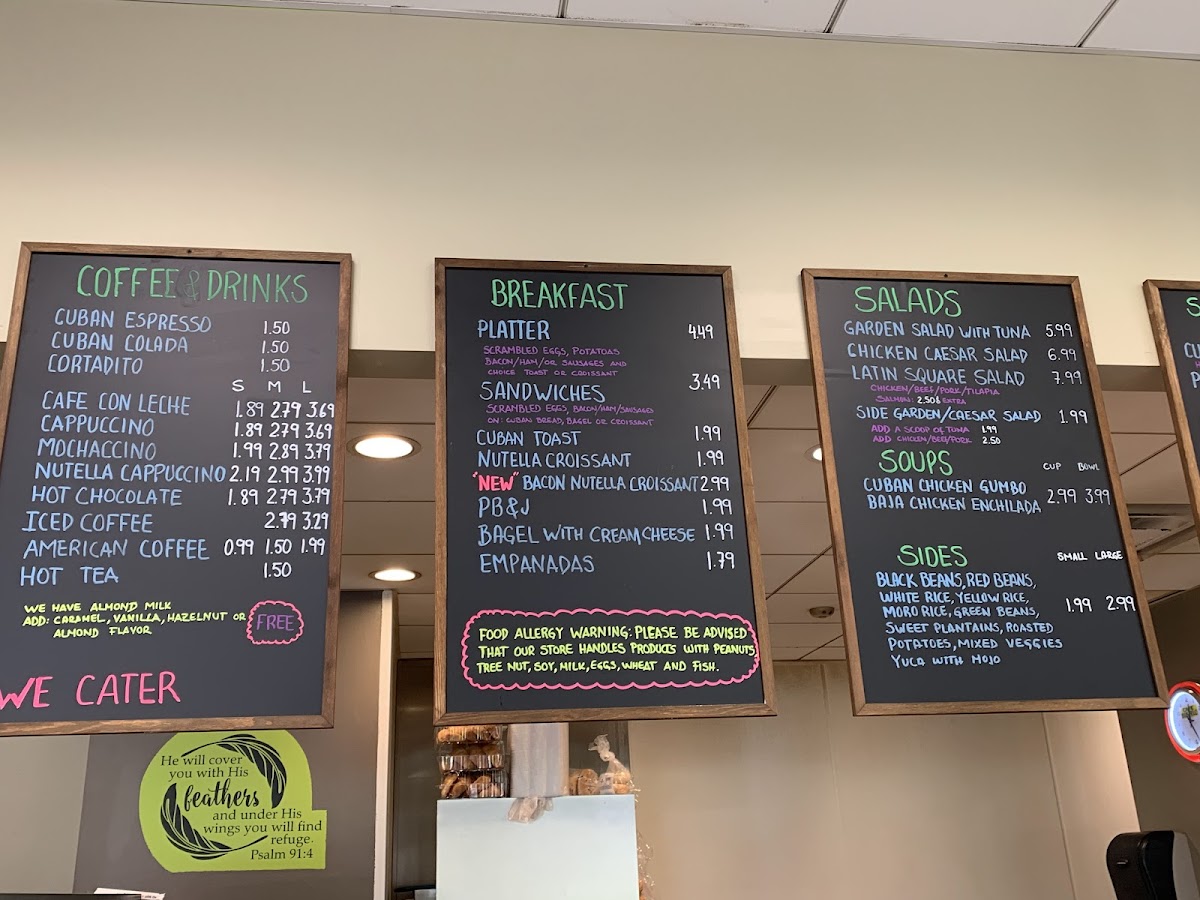 COFFEE & DRINKS
CUBAN ESPRESSO 1.50
CUBAN COLADA 1.50
CORTADITO 1.50
S M L
CAFE CON LECHE 1.89 2.79 3.69
CAPPUCCINO 1.89 2.79 3.69
MOCHACCINO 1.99 2.89 3.79
NUTELLA CAPPUCCINO 2.19 2.99 3.99
HOT CHOCOLATE 1.89 2.79 3.79
ICED COFFEE 2.79 3.29
AMERICAN COFFEE 0.99 1.50 1.99
HOT TEA 1.50
WE HAVE ALMOND MILK
ADD: CARAMEL, VANILLA, HAZELNUT OR FREE
ALMOND FLAVOR
WE CATER
BREAKFAST
PLATTER 4.49
SCRAMBLED EGGS, POTATOES
BACON/HAM/OR SAUSAGES AND
CHOICE TOAST OR CROISSANT
SANDWICHES 3.49
SCRAMBLED EGGS, BACON/HAM/SAUSAGES
ON: CUBAN BREAD, BAGEL OR CROISSANT
CUBAN TOAST 1.99
NUTELLA CROISSANT 1.99
"NEW" BACON NUTELLA CROISSANT 2.99
PB&J 1.99
BAGEL WITH CREAM CHEESE 1.99
EMPANADAS 1.79
FOOD ALLERGY WARNING: PLEASE BE ADVISED
THAT OUR STORE HANDLES PRODUCTS WITH PEANUTS
TREE NUT, SOY, MILK, EGGS, WHEAT AND FISH.
SALADS
GARDEN SALAD WITH TUNA 5.99
CHICKEN CAESAR SALAD 6.99
LATIN SQUARE SALAD 7.99
CHICKEN/BEEF/PORK/TILAPIA
SALMON: 2.50¢ EXTRA
SIDE GARDEN/CAESAR SALAD 1.99
ADD A SCOOP OF TUNA 1.99
ADD CHICKEN/BEEF/PORK 2.50
SOUPS CUP BOWL
CUBAN CHICKEN GUMBO
BAJA CHICKEN ENCHILADA 2.99 3.99
SIDES SMALL LARGE
BLACK BEANS, RED BEANS,
WHITE RICE, YELLOW RICE,
MORO RICE, GREEN BEANS, 1.99 2.99
SWEET PLANTAINS, ROASTED
POTATOES, MIXED VEGGIES
YUCA WITH MOJO
He will cover
you with His
feathers
and under His
wings you will find
refuge.
Psalm 91:4